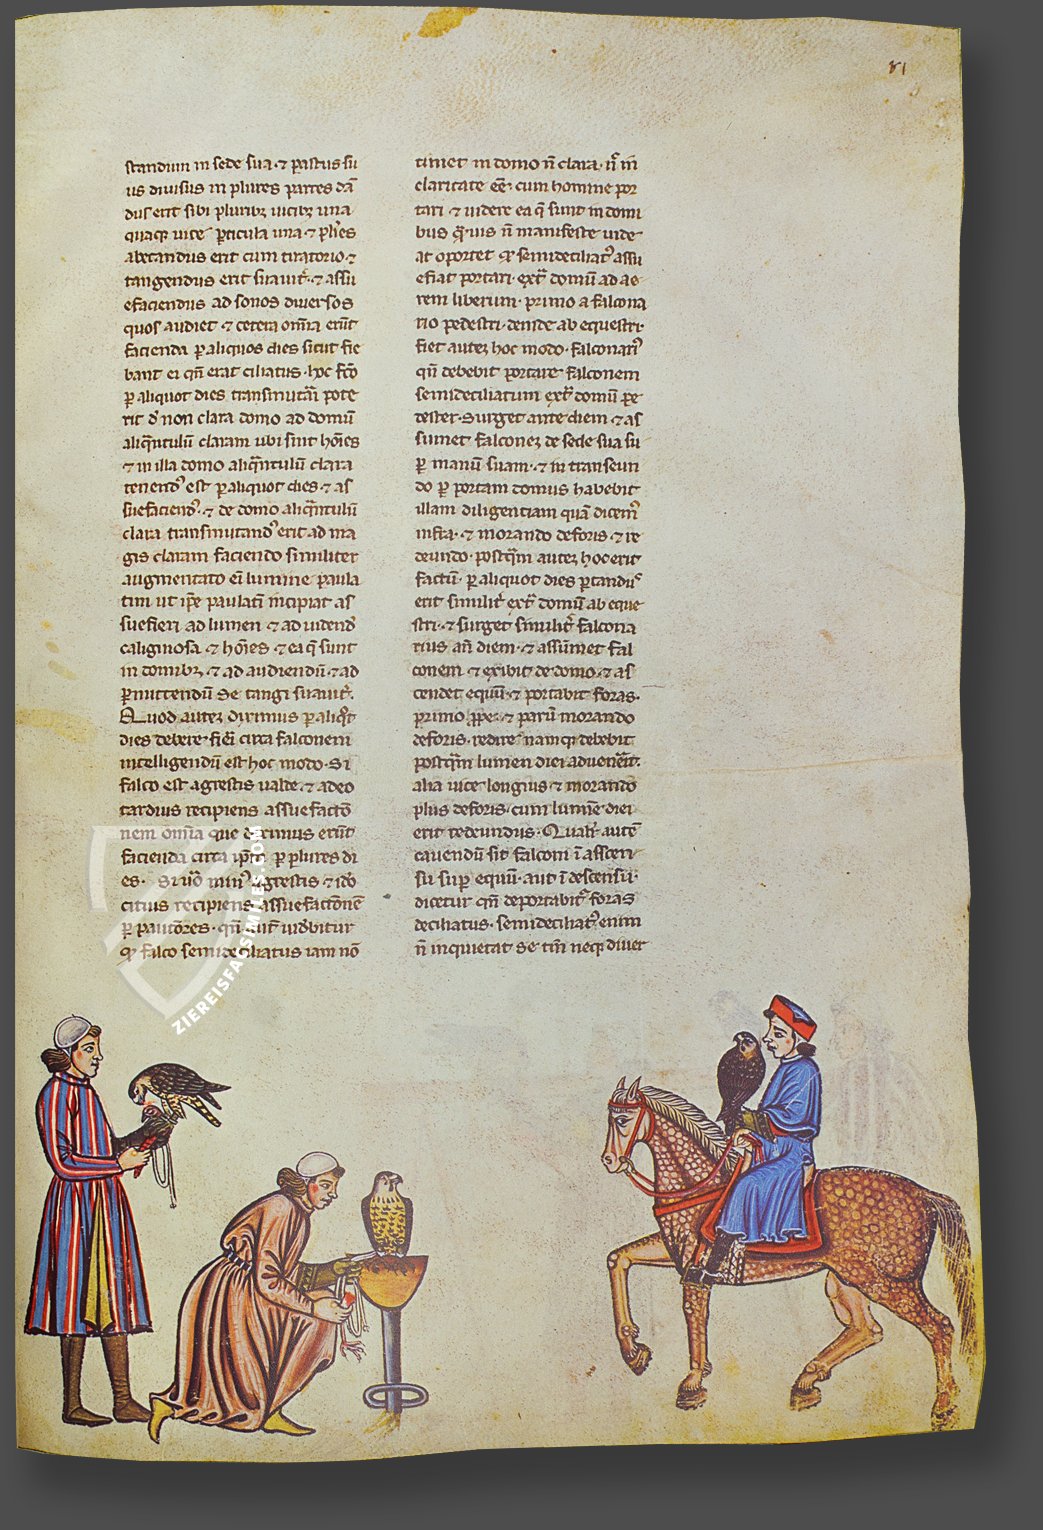 81
standum in sede sua · ⁊ pastus su
us diuisus in plures partes dā
dus erit sibi pluribꝫ uicibꝫ una
quaqꝫ uice particula una · ⁊ plıes
abetandus erit cum tiratorio · ⁊
tangendus erit suauit᷑ · ⁊ assu
efaciendus ad sonos diuersos
quos audiet ⁊ cetera om̄ia erūt
facienda ꝑ aliquos dies sicut fie
bant ei qn̄ erat ciliatus · hoc fc̄o
ꝑ aliquot dies transmutari pote
rit d' non clara domo ad domū
aliqͣntulū claram ubi sint hoīes
⁊ in illa domo aliqͣntulū clara
tenendꝰ est ꝑ aliquot dies · ⁊ as
suefaciendꝰ · ⁊ de domo aliqͣntulū
clara transmutandꝰ erit ad ma
gis claram faciendo similiter
augmentato ei lumine paula
tim ut ip̄e paulatī incipiat as
suefieri ad lumen ⁊ ad uidendū
caliginosa ⁊ hoīes · ⁊ ea q̄ sunt
in domibꝫ · ⁊ ad audiendū · ⁊ ad
ꝑmittendū se tangi suauit᷑.
Quod autez diximus ꝑ aliqͦt
dies debere fieri circa falconem
intelligendū est hoc modo · Si
falco est agrestis ualde · ⁊ adeo
tardius recipiens assuefactō
nem om̄ia que diximus erūt
facienda circa ip̄m ꝑ plures di
es · Si uͦ minꝰ agrestis · ⁊ idō
citius recipiens assuefactōnē
ꝑ pautōres · qn̄ aūt uidebitur
ꝙ falco semideciliatus iam nō
timet in domo n̄ clara · nͬ in
claritate eē cum homine por
tari · ⁊ uidere ea q̄ sunt in domi
bus qͣuis n̄ manifeste uide
at oportet ꝙ semideciliatꝰ assu
efiat portari extͣ domū ad ae
rem liberum · primo a falcona
rio pedestri · deinde ab equestri ·
fiet autez hoc modo · falconariꝰ
qn̄ debebit portare falconem
semideciliatum extͣ domū pe
dester · Surget ante diem · ⁊ as
sumet falconez de sede sua su
ꝑ manū suam · ⁊ in transeun
do ꝑ portam domus habebit
illam diligentiam quā dicemꝰ
infra · ⁊ morando deforis · ⁊ re
deundo · postqͣm autez hoc erit
factū · ꝑ aliquot dies portandus
erit similit᷑ extͣ domū ab eque
stri · ⁊ surget similit᷑ falcona
rius an̄ diem · ⁊ assumet fal
conem ⁊ exibit de domo · ⁊ as
cendet equū · ⁊ portabit foras ·
primo ꝓpe · ⁊ parū morando
deforis · redire namqꝫ debebit
postqͣm lumen diei aduenerit ·
alia uice longius ⁊ morando
plus deforis · cum lumīe diei
erit redeundus · Qualit᷑ autē
cauendū sit falconi ī ascen
su suꝑ equū · aut ī descensu ·
dicetur qn̄ deportabit᷑ foras
deciliatus · semideciliatꝰ enim
n̄ inquietat se tm̄ neqꝫ diuer
ZIEREISFACSIMILES.COM